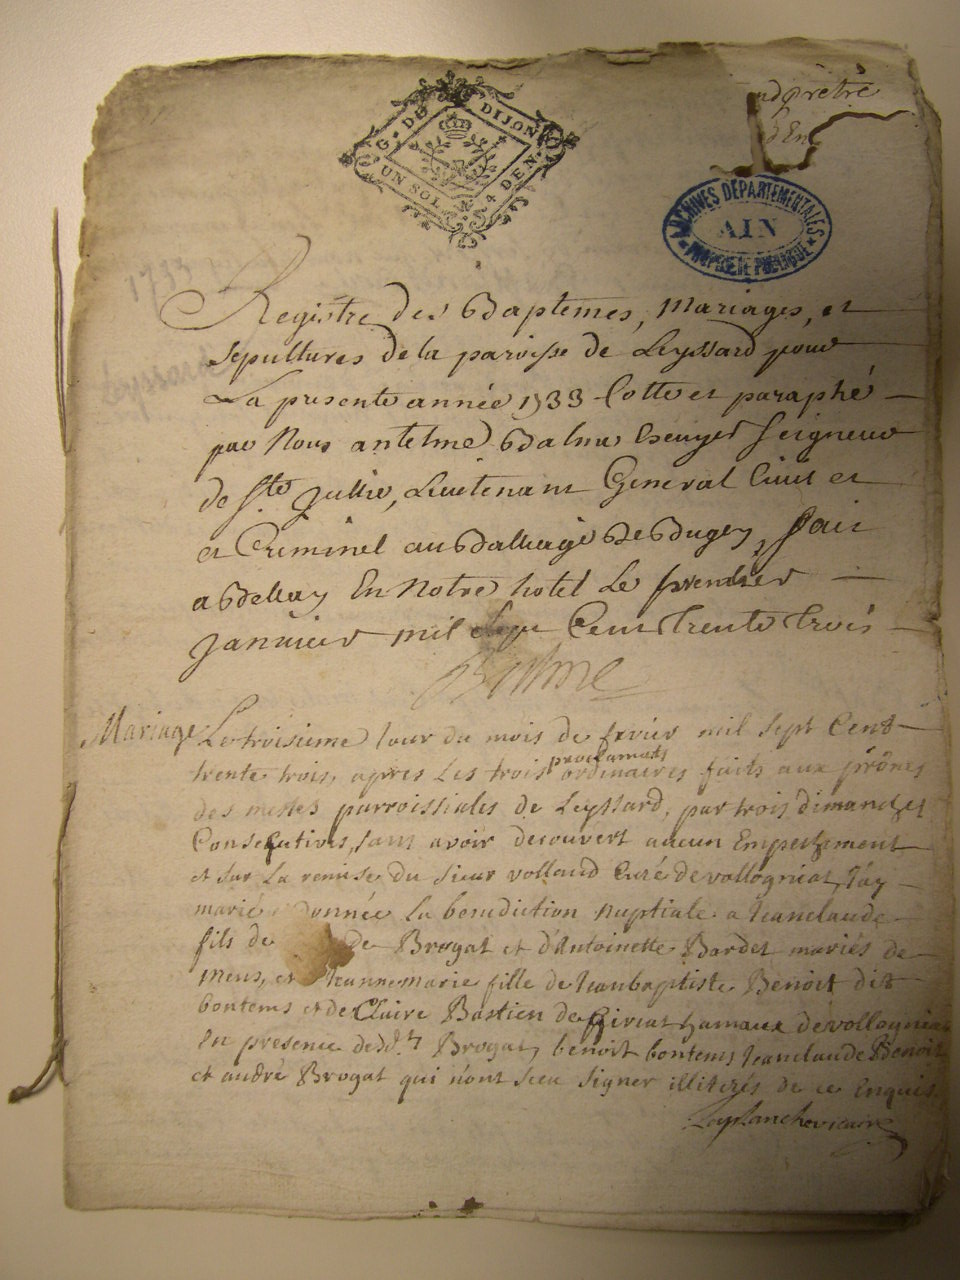 G. DE DIJON
UN SOL 4 DEN.
prêtre
ARCHIVES DÉPARTEMENTALES
AIN
PROPRIÉTÉ PUBLIQUE
Registre des Baptemes, Mariages, et
sepultures de la paroisse de Leyssard pour
La presente année 1733 Cotte et paraphé
par Nous antelme Balme Escuyer Seigneur
de Ste Jullie, Lieutenant General Civil et
et Criminel au Balliage de Bugey, fait
a Belley En Notre hotel Le premier
Janvier mil sept Cent trente trois
Balme
Mariage Le troisieme jour du mois de fevrier mil sept Cent
trente trois, apres les trois proclamats ordinaires faits aux prônes
des messes parroissiales de Leyssard, par trois dimanches
Consecutives, sans avoir decouvert aucun Empeschement
et sur la remise du sieur vollaud Curé de vollogniat, j'ay
marié donnée la benediction nuptiale a Jeanclaude
fils de de Brogat et d'Antoinette Bardet mariés de
Mens, et Jeanne marie fille de Jeanbaptiste Benoit dit
bontems et de Claire Bastien de Giriat hameaux de vollogniat
En presence desdts Brogat, benoit bontems Jeanclaude Benoit
et andré Brogat qui n'ont sceu signer illiterés de ce Enquis
Laplanche vicaire